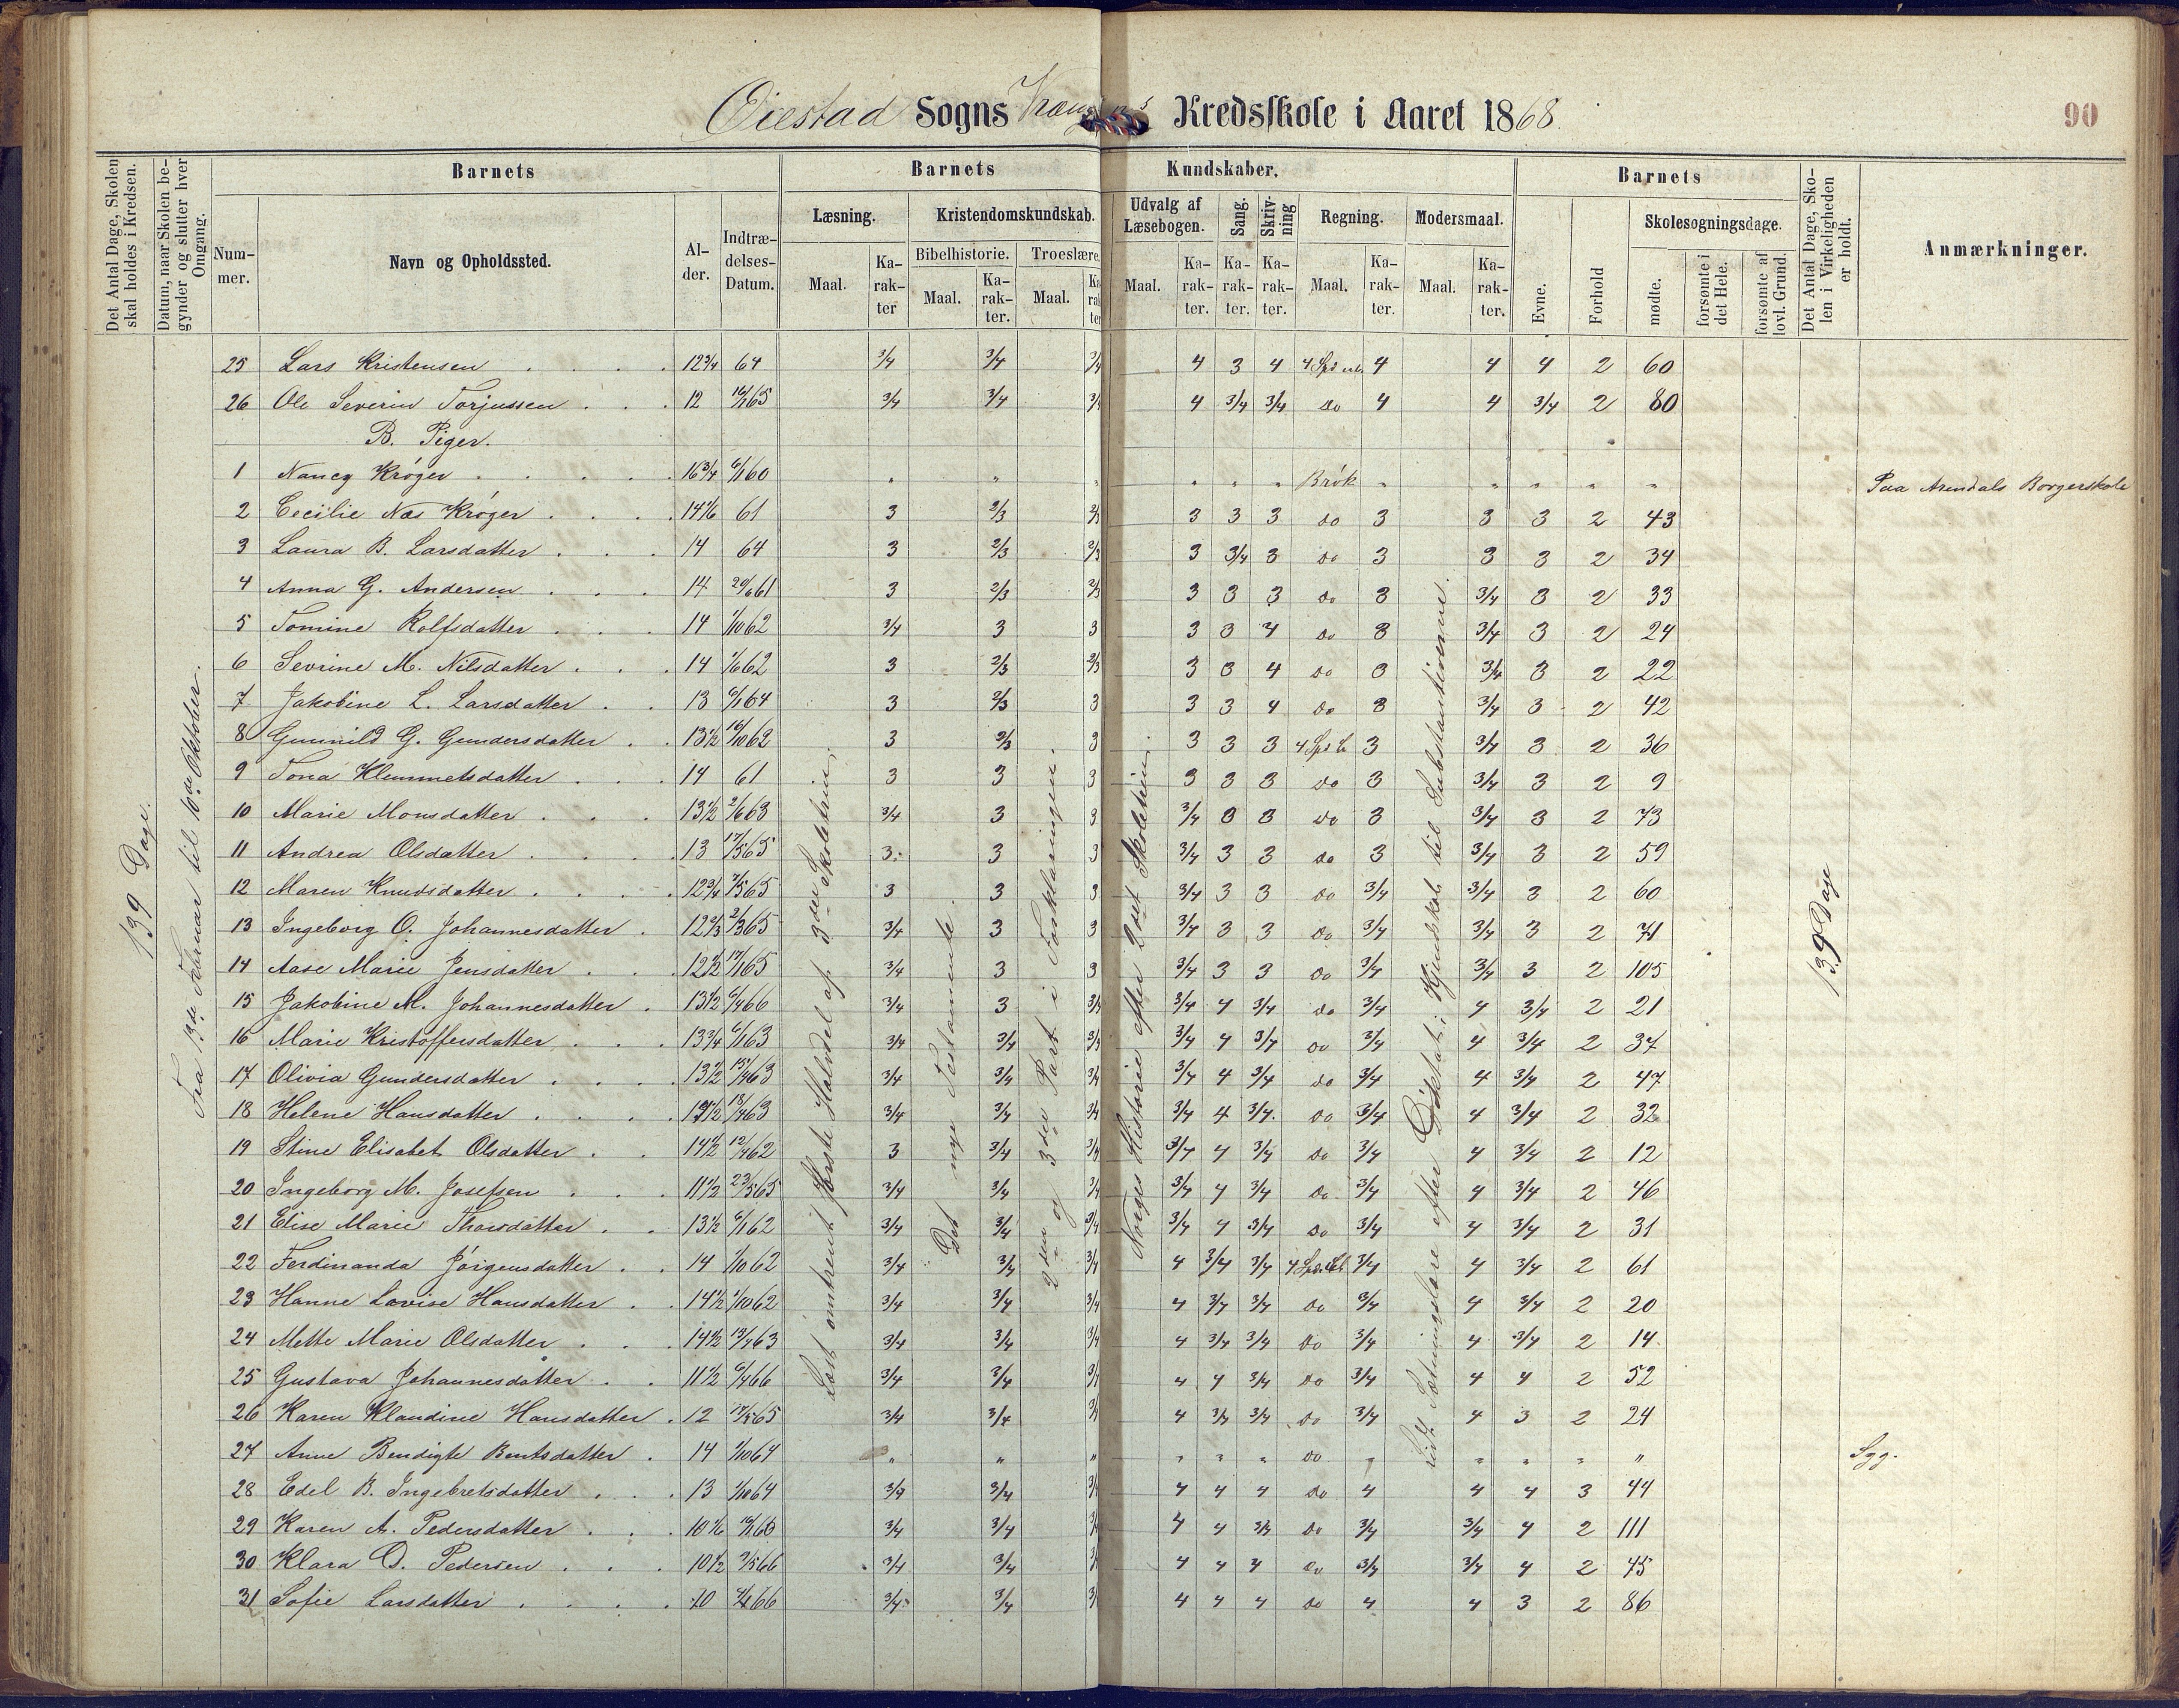 Øiestad Sogns Kredsskole i Aaret 1868.
90
Det Antal Dage, Skolen skal holdes i Kredsen.
Datum, naar Skolen begynder og slutter hver Omgang.
Barnets
Nummer.
Navn og Opholdssted.
Alder.
Indtrædelses-Datum.
Barnets Kundskaber.
Læsning.
Maal.
Karakter
Kristendomskundskab.
Bibelhistorie.
Maal.
Karakter.
Troeslære.
Maal.
Karakter
Udvalg af Læsebogen.
Maal.
Karakter.
Sang.
Karakter.
Skrivning
Karakter.
Regning.
Maal.
Karakter.
Modersmaal.
Maal.
Karakter.
Barnets
Evne.
Forhold
Skolesøgningsdage.
mødte.
forsømte i det Hele.
forsømte af lovl. Grund.
Det Antal Dage, Skolen i Virkeligheden er holdt.
Anmærkninger.
139 Dage.
Fra 13de Februar til 16de Oktober.
Læst omtrent første Halvdel af 3die Skoletrin.
Det nye Testamente.
2den og 3die Part i Forklaringen.
Norges Historie efter 2det Skoletrin.
Lidt Sætningslære efter Diktat; Kjendskab til Substantiverne.
139 Dage
25 Lars Kristensen 12 3/4 64 3/4 3/4 3/4 4 3 4 4 4 4 2 60
26 Ole Severin Torjussen 12 65 3/4 3/4 3/4 4 3/4 3/4 do 4 4 3/4 2 80
B. Piger.
1 Nancy Krøger 16 3/4 6/1 60 " " " " " " Brøk " " " " " Paa Arendals Borgerskole
2 Cecilie Næs Krøger 14 1/6 61 3 2/3 2/3 3 3 3 do 3 3 3 2 43
3 Laura B. Larsdatter 14 64 3 2/3 2/3 3 3/4 3 do 3 3 3 2 34
4 Anna G. Andersen 14 20/6 61 3 2/3 2/3 3 3 3 do 3 3/4 3 2 33
5 Tomine Rolfsdatter 14 1/10 62 3/4 3 3 3 3 4 do 3 3/4 3 2 24
6 Sevrine M. Nilsdatter 14 1/6 62 3 2/3 2/3 3 3 4 do 3 3/4 3 2 22
7 Jakobine L. Larsdatter 13 6/1 64 3 2/3 3 3 3 4 do 3 3/4 3 2 42
8 Gunnild G. Gundersdatter 13 1/2 16/10 62 3 2/3 3 3 3 3 3 3/4 3 2 36
9 Tona Klemmetsdatter 14 61 3 3 3 3 3 3 do 3 3/4 3 2 9
10 Marie Monsdatter 13 1/2 2/6 63 3/4 3 3 3/4 3 3 do 3 3/4 3 2 73
11 Andrea Olsdatter 13 17/5 65 3 3 3 3/4 3 3 do 3 3/4 3 2 59
12 Maren Knudsdatter 12 3/4 7/5 65 3 3 3 3/4 3 3 do 3/4 3/4 3 2 60
13 Ingeborg O. Johannesdatter 12 2/3 2/3 65 3/4 3 3 3/4 3 3 do 3/4 3/4 3 2 71
14 Aase Marie Jensdatter 12 1/2 17/1 65 3/4 3 3 3/4 3 3 do 3/4 3/4 3 2 105
15 Jakobine M. Johannesdatter 13 1/2 6/4 66 3/4 3 3/4 3/4 4 3/4 do 3/4 4 3/4 2 21
16 Marie Kristoffersdatter 13 3/4 6/1 63 3/4 3/4 3/4 3/4 4 3/4 do 3/4 4 3/4 2 37
17 Olivia Gundersdatter 13 1/2 15/4 63 3/4 3/4 3/4 3/4 4 3/4 do 3/4 4 3/4 2 47
18 Helene Hansdatter 13 1/2 18/4 63 3/4 3/4 3/4 3/4 4 3/4 do 3/4 4 3/4 2 32
19 Stine Elisabet Olsdatter 14 1/2 12/4 62 3 3/4 3/4 3/4 4 3/4 do 3/4 4 3/4 2 12
20 Ingeborg M. Josefsen 11 1/2 23/5 65 3/4 3/4 3/4 3/4 4 3/4 do 3/4 4 3/4 2 46
21 Elise Marie Thorsdatter 13 1/2 6/1 62 3/4 3/4 3/4 3/4 4 3/4 do 3/4 4 3/4 2 31
22 Ferdinanda Jørgensdatter 14 1/10 62 3/4 3/4 3/4 4 3/4 3/4 3/4 4 3/4 2 61
23 Hanne Lovise Hansdatter 14 1/2 1/10 62 3/4 3/4 3/4 4 3/4 3/4 do 3/4 4 3/4 2 20
24 Mette Marie Olsdatter 14 1/2 13/4 63 3/4 3/4 3/4 4 3/4 3/4 do 3/4 4 3/4 2 14
25 Gustava Johannesdatter 11 1/2 6/4 66 3/4 3/4 3/4 4 4 3/4 do 3/4 4 4 2 52
26 Karen Klaudine Hansdatter 12 65 3/4 3/4 3/4 4 3/4 3/4 do 3/4 4 3 2 24
27 Anne Bendigte Bentsdatter 14 1/10 64 " " " " " " do " " " " " Syg.
28 Edel B. Ingebretsdatter 13 1/10 64 3/4 3/4 3/4 4 4 4 do 4 4 4 3 44
29 Karen A. Pedersdatter 10 1/6 66 3/4 3/4 3/4 4 4 3/4 do 3/4 3/4 4 2 111
30 Klara O. Pedersen 10 1/2 7/5 66 3/4 3/4 3/4 4 4 4 do 3/4 3/4 4 2 45
31 Sofie Larsdatter 10 66 3/4 3/4 3/4 4 4 4 do 4 4 3 2 86